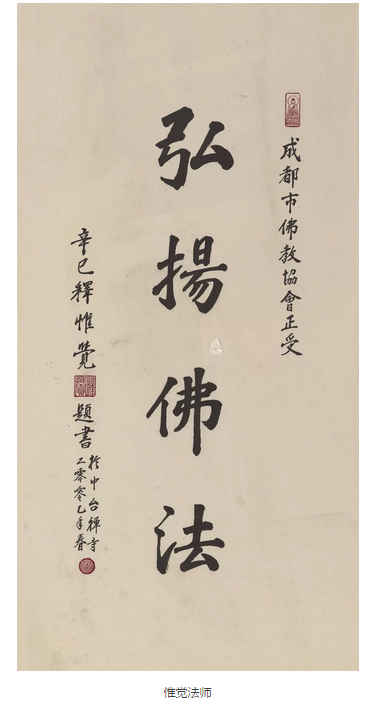 成都市佛教協會正受
弘揚佛法
辛巳釋惟覺題書
於中台禪寺
二零零乙年春
惟觉法师